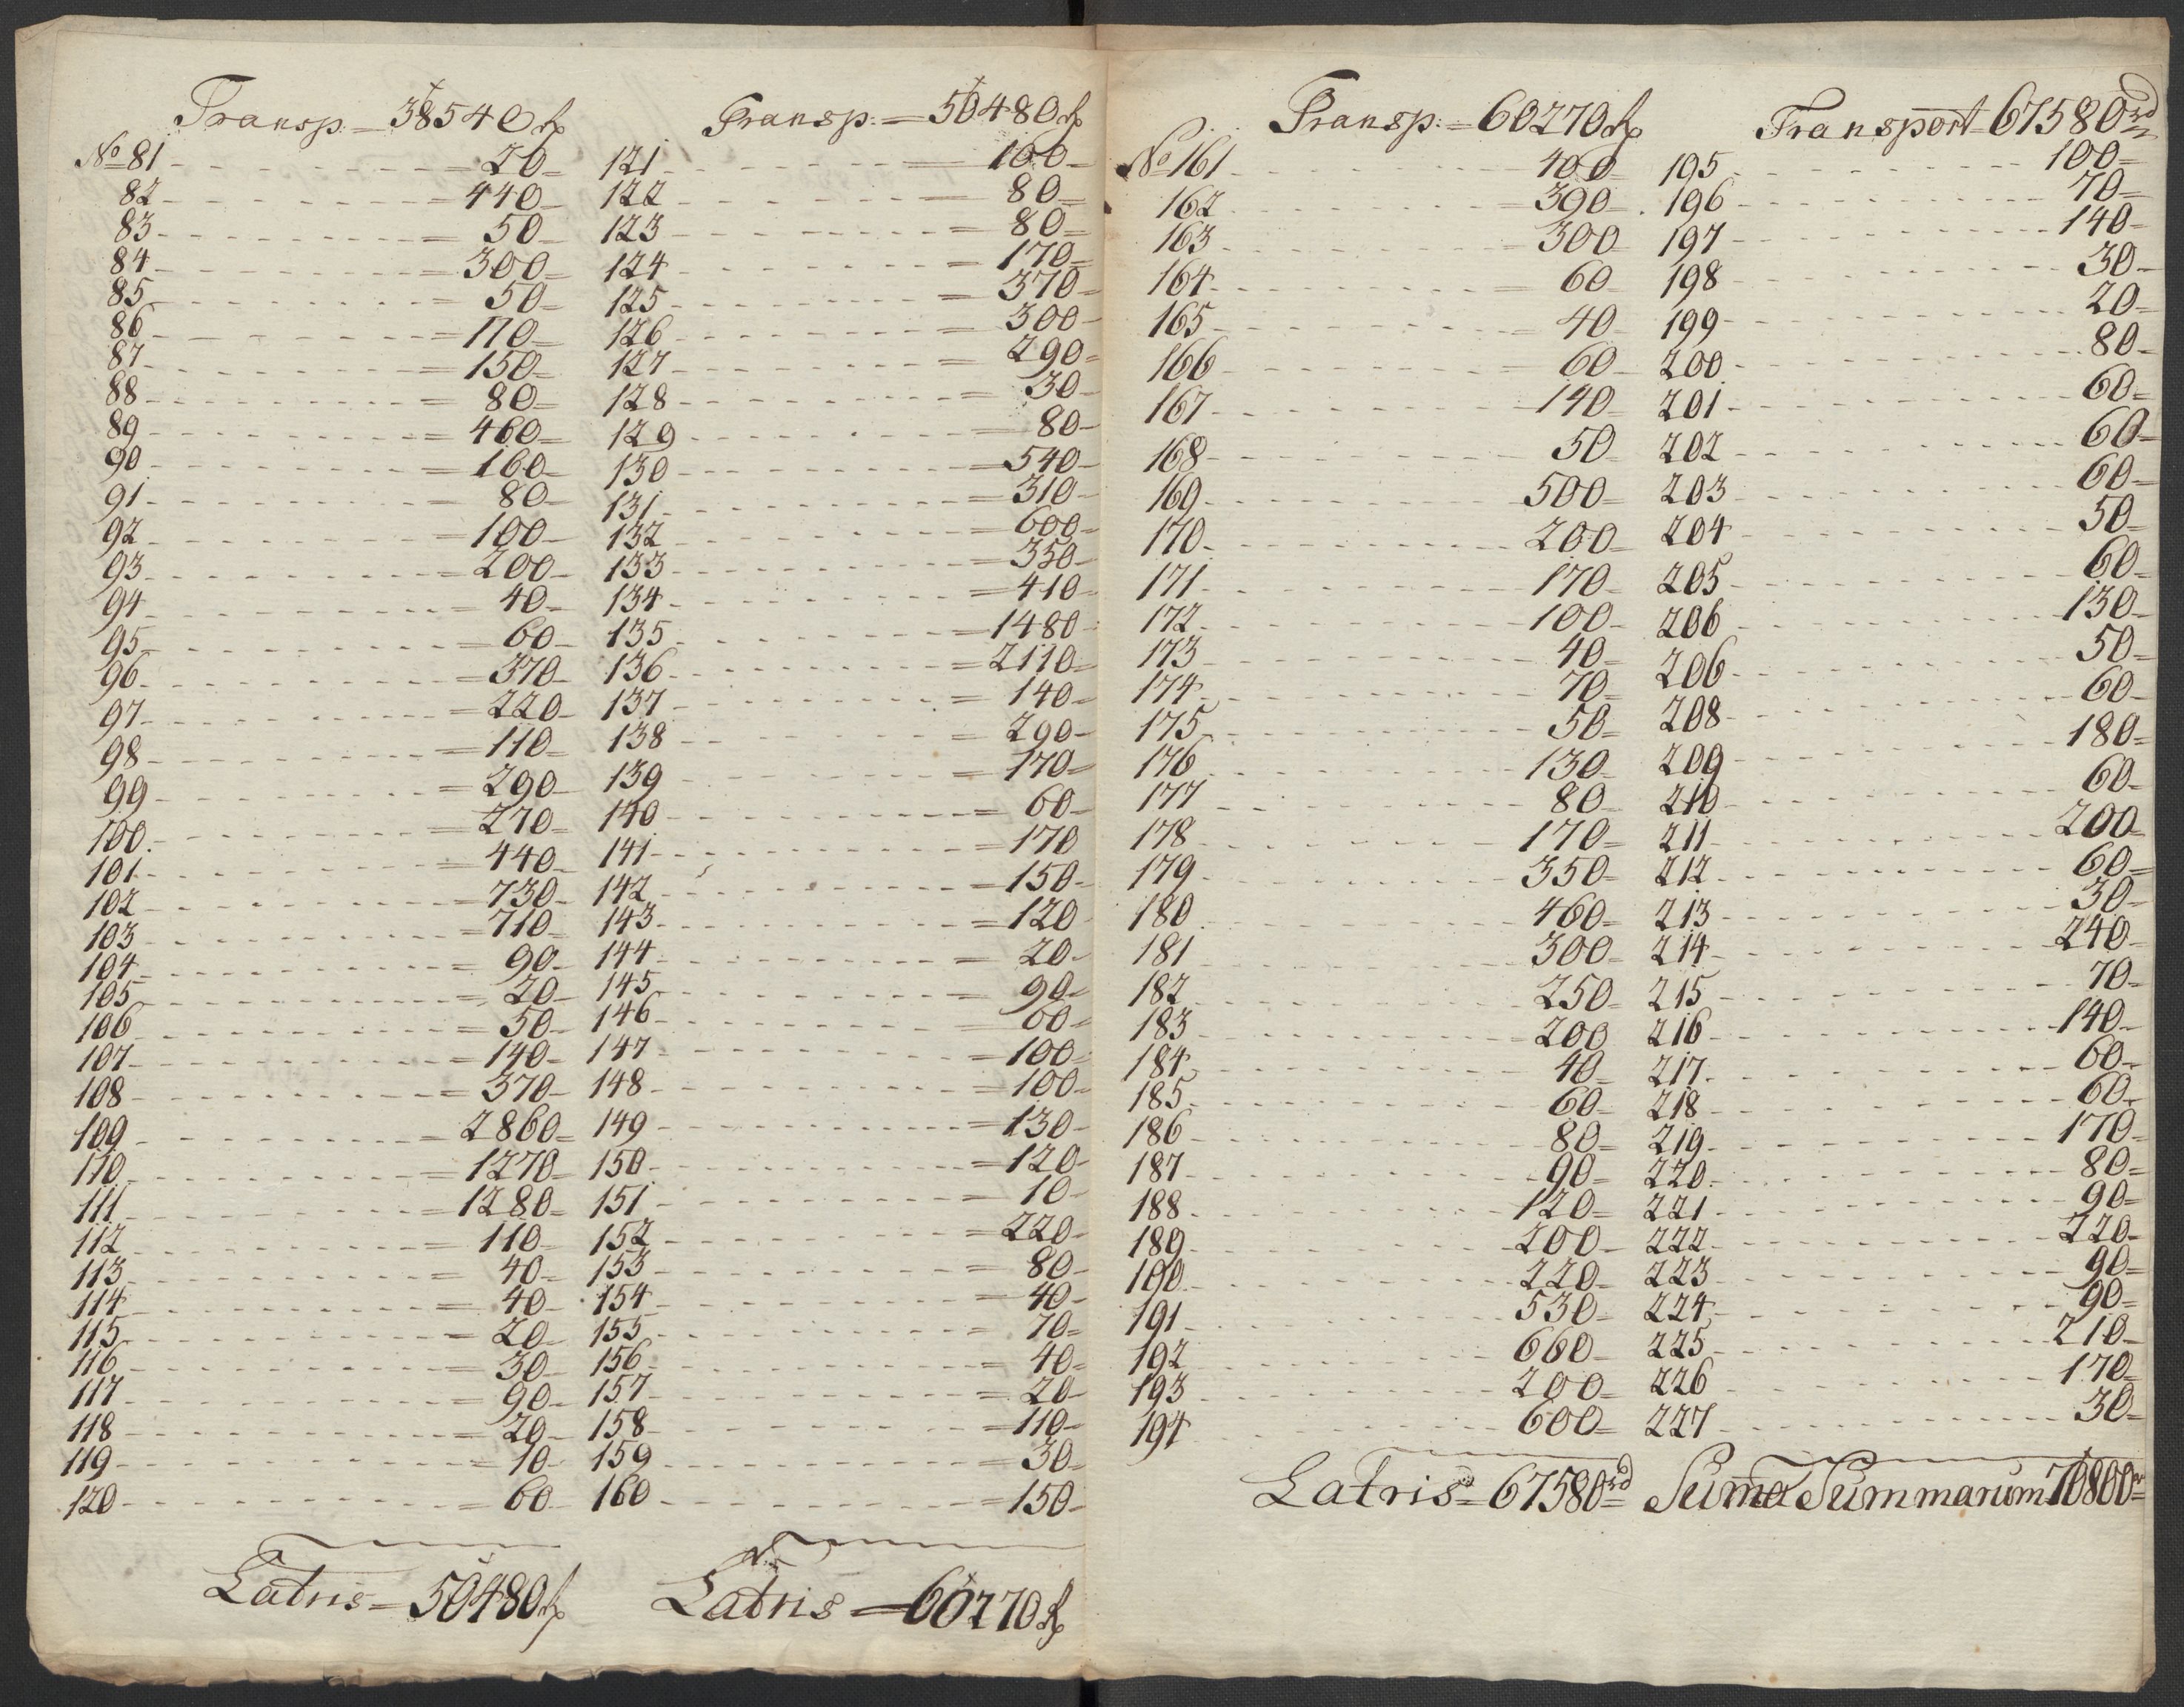 Transp. = 38540 rd
No 81 = 20
82 = 440
83 = 50
84 = 300
85 = 50
86 = 110
87 = 150
88 = 80
89 = 460
90 = 160
91 = 80
92 = 100
93 = 200
94 = 40
95 = 60
96 = 370
97 = 220
98 = 110
99 = 290
100 = 270
101 = 440
102 = 730
103 = 710
104 = 90
105 = 20
106 = 50
107 = 140
108 = 370
109 = 2860
110 = 1270
111 = 1280
112 = 110
113 = 40
114 = 40
115 = 20
116 = 30
117 = 90
118 = 20
119 = 10
120 = 60
Latris = 50480 rd
Transp. = 50480 rd
121 = 100
122 = 80
123 = 80
124 = 170
125 = 370
126 = 300
127 = 290
128 = 30
129 = 80
130 = 540
131 = 310
132 = 600
133 = 350
134 = 410
135 = 1480
136 = 2110
137 = 140
138 = 290
139 = 170
140 = 60
141 = 170
142 = 150
143 = 120
144 = 20
145 = 90
146 = 60
147 = 100
148 = 100
149 = 130
150 = 120
151 = 10
152 = 220
153 = 80
154 = 40
155 = 70
156 = 40
157 = 20
158 = 110
159 = 30
160 = 150
Latris = 60270 rd
Transp. = 60270 rd
No 161 400
162 390
163 300
164 60
165 40
166 60
167 140
168 50
169 500
170 200
171 170
172 100
173 40
174 70
175 50
176 130
177 80
178 170
179 350
180 460
181 300
182 250
183 200
184 40
185 60
186 80
187 90
188 120
189 200
190 220
191 530
192 660
193 200
194 600
Latris = 67580 rd
Transport 67580 rd
195 100
196 70
197 140
198 30
199 20
200 80
201 60
202 60
203 60
204 50
205 60
206 130
206 50
208 60
209 180
210 60
211 200
212 60
213 30
214 240
215 70
216 140
217 60
218 60
219 170
220 80
221 90
222 220
223 90
224 90
225 210
226 170
227 30
Suma Summarum 70800